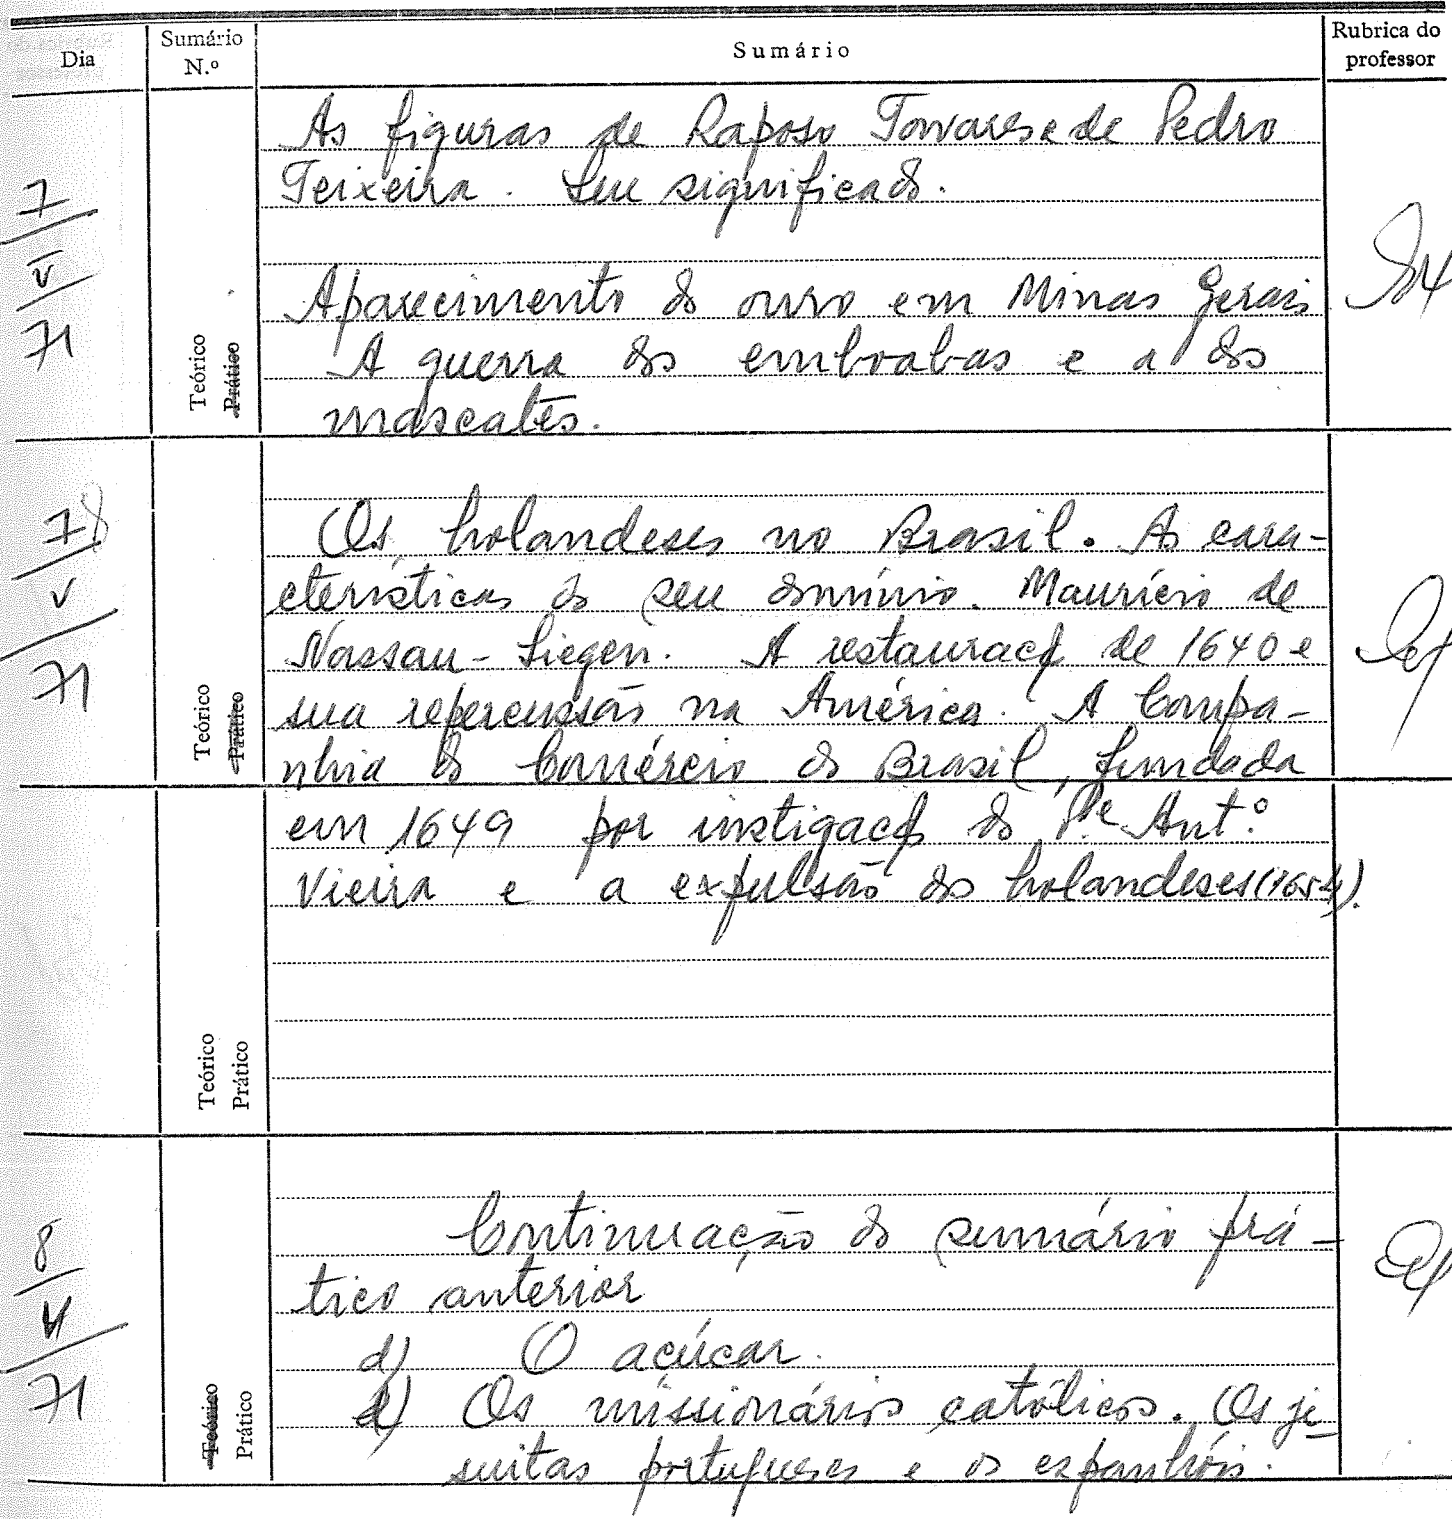 Dia
Sumário
N.º
Sumário
Rubrica do
professor
7
V
71
Teórico
Prático
As figuras de Raposo Tavares e de Pedro
Teixeira. Seu significado.
Aparecimento do ouro em Minas Gerais
A guerra dos emboabas e a dos
mascates.
78
V
71
Teórico
Prático
Os holandeses no Brasil. As cara-
cterísticas do seu domínio. Maurício de
Nassau-Siegen. A restauraç. de 1640 e
sua repercussão na América. A Compa-
nhia do Comércio do Brasil, fundada
em 1649 por instigaç. do Pe Ant.º
Vieira e a expulsão dos holandeses (1654).
Teórico
Prático
8
V
71
Teórico
Prático
Continuação do sumário prá-
tico anterior
d) O açúcar.
e) Os missionários católicos. Os je-
suitas portugueses e os espanhóis.